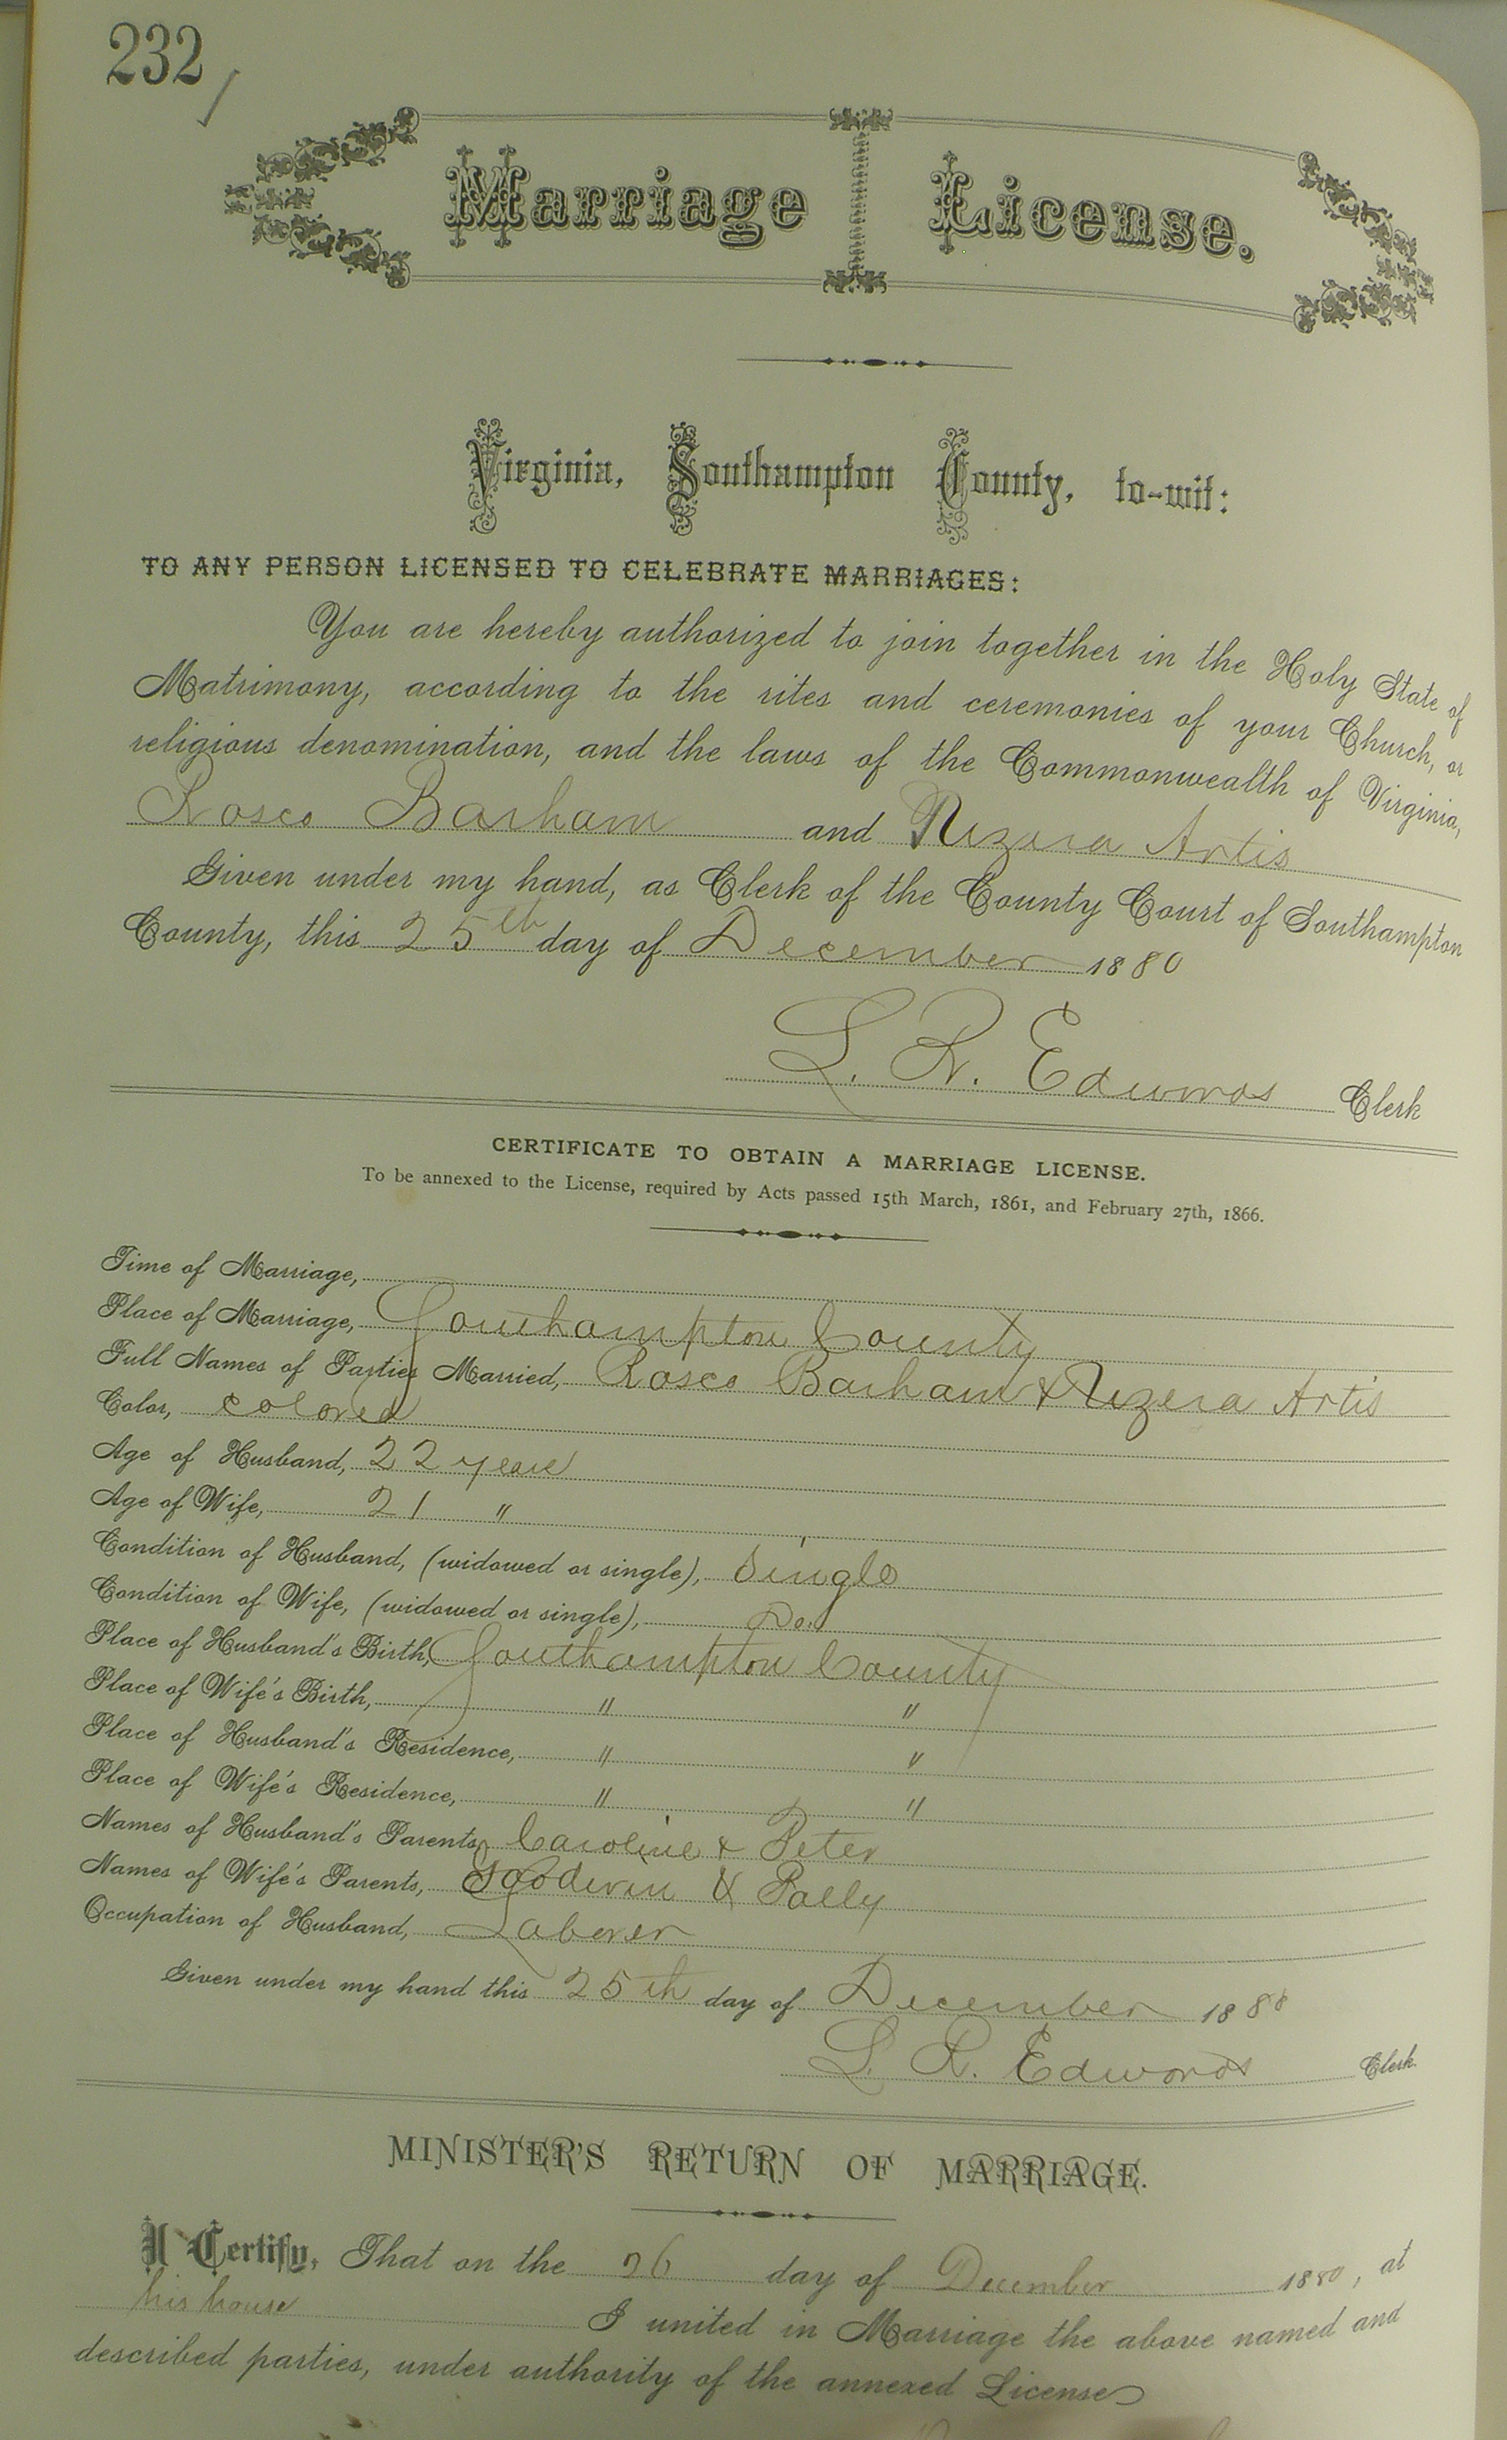 232
Marriage License.
Virginia, Southampton County, to-wit:
TO ANY PERSON LICENSED TO CELEBRATE MARRIAGES:
You are hereby authorized to join together in the Holy State of
Matrimony, according to the rites and ceremonies of your Church, or
religious denomination, and the laws of the Commonwealth of Virginia,
Rosco Barham and Nizera Artis
Given under my hand, as Clerk of the County Court of Southampton
County, this 25th day of December 1880
L. R. Edwards Clerk
CERTIFICATE TO OBTAIN A MARRIAGE LICENSE.
To be annexed to the License, required by Acts passed 15th March, 1861, and February 27th, 1866.
Time of Marriage,
Place of Marriage, Southampton County
Full Names of Parties Married, Rosco Barham & Nizera Artis
Color, colored
Age of Husband, 22 years
Age of Wife, 21 "
Condition of Husband, (widowed or single), Single
Condition of Wife, (widowed or single), Do.
Place of Husband's Birth, Southampton County
Place of Wife's Birth, " "
Place of Husband's Residence, " "
Place of Wife's Residence, " "
Names of Husband's Parents, Caroline & Peter
Names of Wife's Parents, Goodwin & Polly
Occupation of Husband, Laborer
Given under my hand this 25th day of December 1880
L. R. Edwards Clerk.
MINISTER'S RETURN OF MARRIAGE.
I Certify, That on the 26 day of December 1880, at
his house I united in Marriage the above named and
described parties, under authority of the annexed License